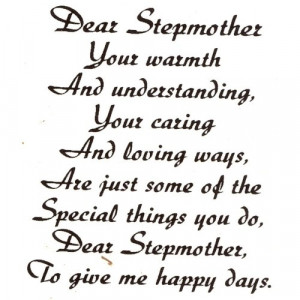 Dear Stepmother
Your warmth
And understanding,
Your caring
And loving ways,
Are just some of the
Special things you do,
Dear Stepmother,
To give me happy days.